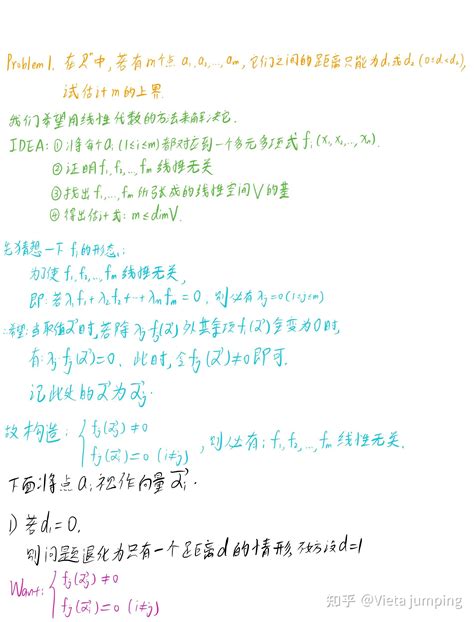 Problem 1. 在 R^n 中, 若有 m 个点 a₁, a₂, …, aₘ, 它们之间的距离只能为 d₁ 或 d₂ (0≤d₁<d₂),
试估计 m 的上界.
我们希望用线性代数的方法来解决它.
IDEA: ① 将每个 aᵢ (1≤i≤m) 都对应到一个多元多项式 fᵢ (x₁, x₂, …, xₙ).
② 证明 f₁, f₂, …, fₘ 线性无关
③ 找出 f₁, …, fₘ 所张成的线性空间 V 的基
④ 得出估计式: m ≤ dim V.
先猜想一下 fᵢ 的形态:
为了使 f₁, f₂, …, fₘ 线性无关,
即: 若 λ₁f₁+λ₂f₂+…+λₘfₘ=0, 则必有 λⱼ=0 (1≤j≤m)
希望: 当取值 α⃗ 时, 若除 λⱼfⱼ(α⃗) 外其余项 fᵢ(α⃗) 全变为 0 时,
有: λⱼfⱼ(α⃗)=0, 此时, 令 fⱼ(α⃗)≠0 即可.
记此处的 α⃗ 为 α⃗ⱼ.
故构造: { fⱼ(α⃗ⱼ)≠0
fⱼ(α⃗ᵢ)=0 (i≠j) , 则必有: f₁, f₂, …, fₘ 线性无关.
下面将点 aᵢ 视作向量 α⃗ᵢ.
1) 若 d₁=0,
则问题退化为只有一个距离 d 的情形, 不妨设 d=1
Want: { fⱼ(α⃗ⱼ)≠0
fⱼ(α⃗ᵢ)=0 (i≠j)
知乎 @Vieta jumping